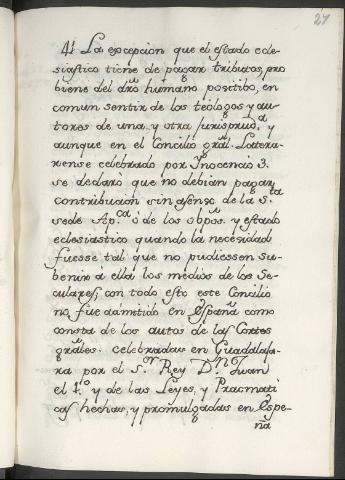 27
41 La excepcion que el estado ecle-
siastico tiene de pagar tributos, pro
biene del dro humano positibo, en
comun sentir de los teologos y au-
tores de una y otra jurisprud.a y
aunque en el Concilio gral. Latera-
nense celebrado por Ynocencio 3.
se declaró que no debian pagar
contribucion sin asenso de la S.ta
sede Ap.ca ó de los obpos. y estado
eclesiastico quando la necesidad
fuesse tal que no pudiessen su-
benir á ella los medios de los Se-
culares; con todo esto este Concilio
no fue admitido en España como
consta de los autos de las Cortes
grâles. celebradas en Guadalaja-
ra por el S.or Rey D.n Juan
el 1.ro y de las Leyes, y Pracmati
cas hechas, y promulgadas en Espe-
ña